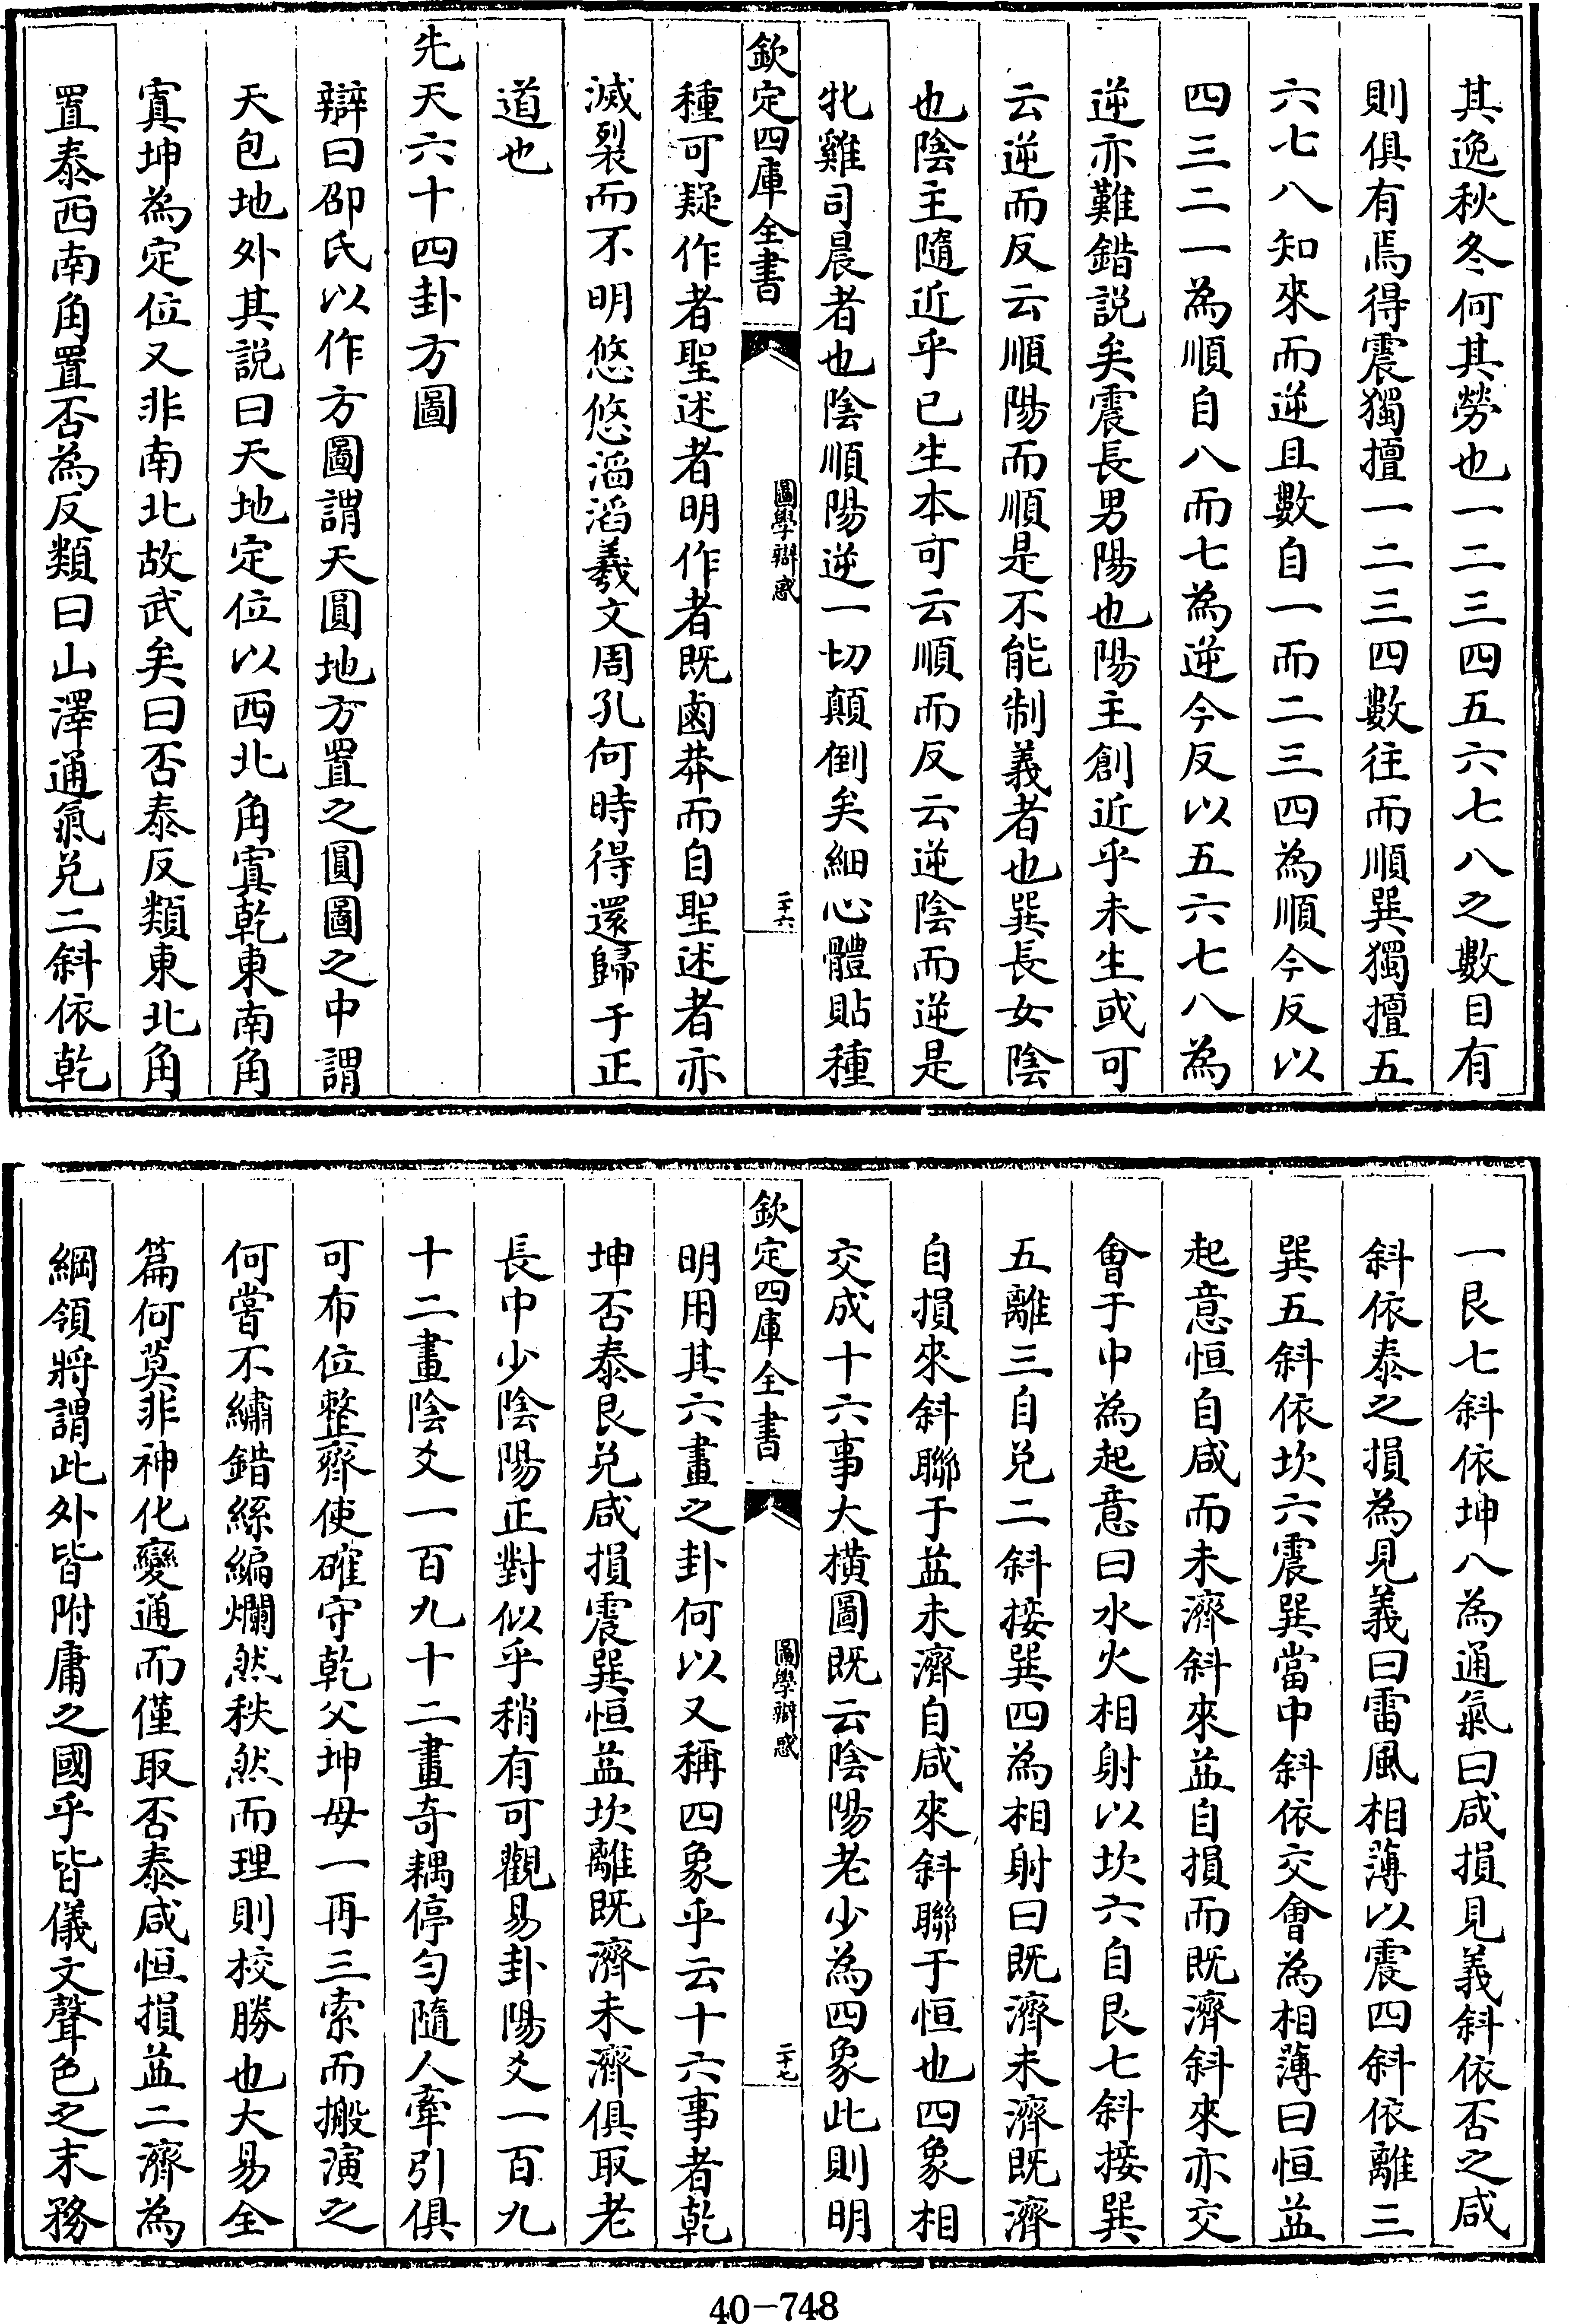 其逸秋冬何其勞也一二三四五六七八之數目有
則俱有焉得震獨擅一二三四數往而順巽獨擅五
六七八知來而逆且數自一而二三四為順今反以
四三二一為順自八而七為逆今反以五六七八為
逆亦難錯説矣震長男陽也陽主創近乎未生或可
云逆而反云順陽而順是不能制義者也巽長女陰
也陰主隨近乎已生本可云順而反云逆陰而逆是
牝雞司晨者也陰順陽逆一切顛倒矣細心體貼種
欽定四庫全書
圖學辯惑
二十六
種可疑作者聖述者明作者既鹵莽而自聖述者亦
滅裂而不明悠悠滔滔羲文周孔何時得還歸于正
道也
先天六十四卦方圖
辯曰邵氏以作方圖謂天圓地方置之圓圖之中謂
天包地外其説曰天地定位以西北角寘乾東南角
寘坤為定位又非南北故武矣曰否泰反類東北角
置泰西南角置否為反類曰山澤通氣兑二斜依乾
一艮七斜依坤八為通氣曰咸損見義斜依否之咸
斜依泰之損為見義曰雷風相薄以震四斜依離三
巽五斜依坎六震巽當中斜依交會為相薄曰恒益
起意恒自咸而未濟斜來益自損而既濟斜來亦交
會于中為起意曰水火相射以坎六自艮七斜接巽
五離三自兑二斜接巽四為相射曰既濟未濟既濟
自損來斜聯于益未濟自咸來斜聯于恒也四象相
交成十六事大横圖既云陰陽老少為四象此則明
欽定四庫全書
圖學辯惑
二十七
明用其六畫之卦何以又稱四象乎云十六事者乾
坤否泰艮兑咸損震巽恒益坎離既濟未濟俱取老
長中少陰陽正對似乎稍有可觀易卦陽爻一百九
十二畫陰爻一百九十二畫奇耦停勻隨人牽引俱
可布位整齊使確守乾父坤母一再三索而搬演之
何嘗不繡錯絲編爛然秩然而理則校勝也大易全
篇何莫非神化變通而僅取否泰咸恒損益二濟為
綱領將謂此外皆附庸之國乎皆儀文聲色之末務
40-748